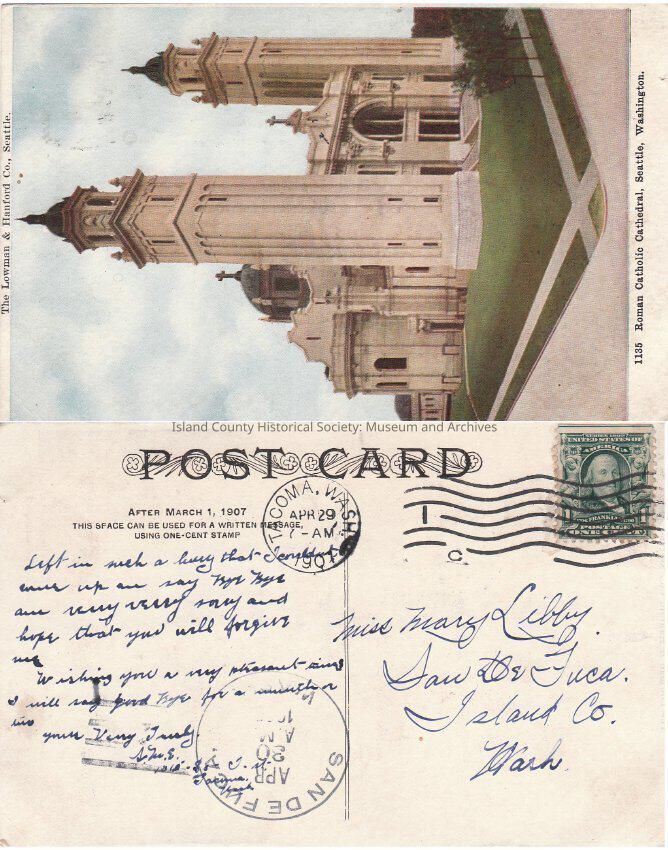 The Lowman & Hanford Co., Seattle.
1135 Roman Catholic Cathedral, Seattle, Washington.
Island County Historical Society: Museum and Archives
POST CARD
AFTER MARCH 1, 1907
THIS SPACE CAN BE USED FOR A WRITTEN MESSAGE,
USING ONE-CENT STAMP
TACOMA, WASH.
APR 29
7-AM
190
1
C
SERIES 1902
UNITED STATES OF
AMERICA
FRANKLIN
POSTAGE
ONE CENT
Left in such a hurry that I couldn't
come up an say Bye Bye
am very very sorry and
hope that you will forgive
me
Wishing you a very pleasant time
I will say good Bye for a month or
two
your Very Truly.
S.M.E.
Tacoma,
Wash
Miss Mary Libby.
San De Fuca.
Island Co.
Wash.
SAN DE FU
APR
30
A.M.